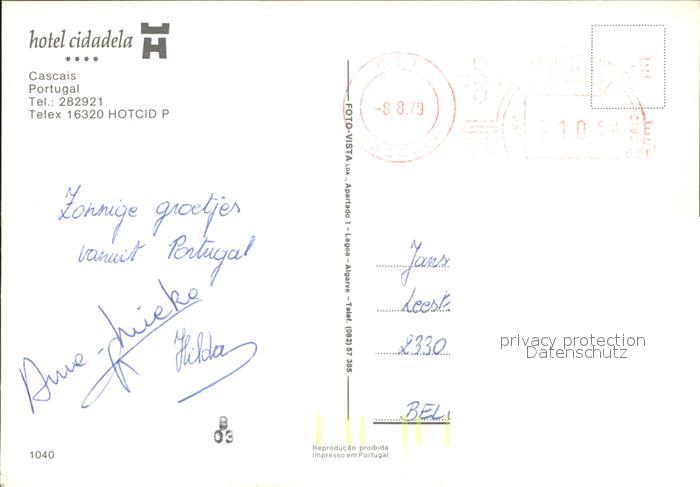 hotel cidadela
Cascais
Portugal
Tel.: 282921
Telex 16320 HOTCID P
CTT
-8 8.79
10
FOTO-VISTA LDA., Apartado 1 - Lagoa - Algarve - Telef. (082) 57 385
Zonnige groetjes
vanuit Portugal
Hilda
Jans
Leest
2330
BEL
privacy protection
Datenschutz
B
03
1040
Reprodução proibida
Impresso em Portugal